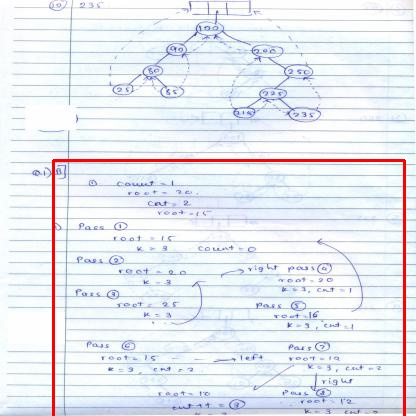 (10) 235
100
90 200
80 250
25 85 225
215 235
Q.1) B]
count = 1
root = 20.
cnt = 2
root = 15
Pass ①
root = 15
k = 3 count = 0
Pass ②
root = 20 → right pass ④
k = 3 root = 20
k = 3, cnt = 1
Pass ③
root = 25 Pass ⑤
k = 3 root = 16
k = 3, cnt = 1
Pass ⑥ Pass ⑦
root = 15 → left root = 12
k = 3, cnt = 2 k = 3, cnt = 2
right
root = 10 Pass ⑧
cnt++ = ③ root = 12
k = 3, cnt = 2